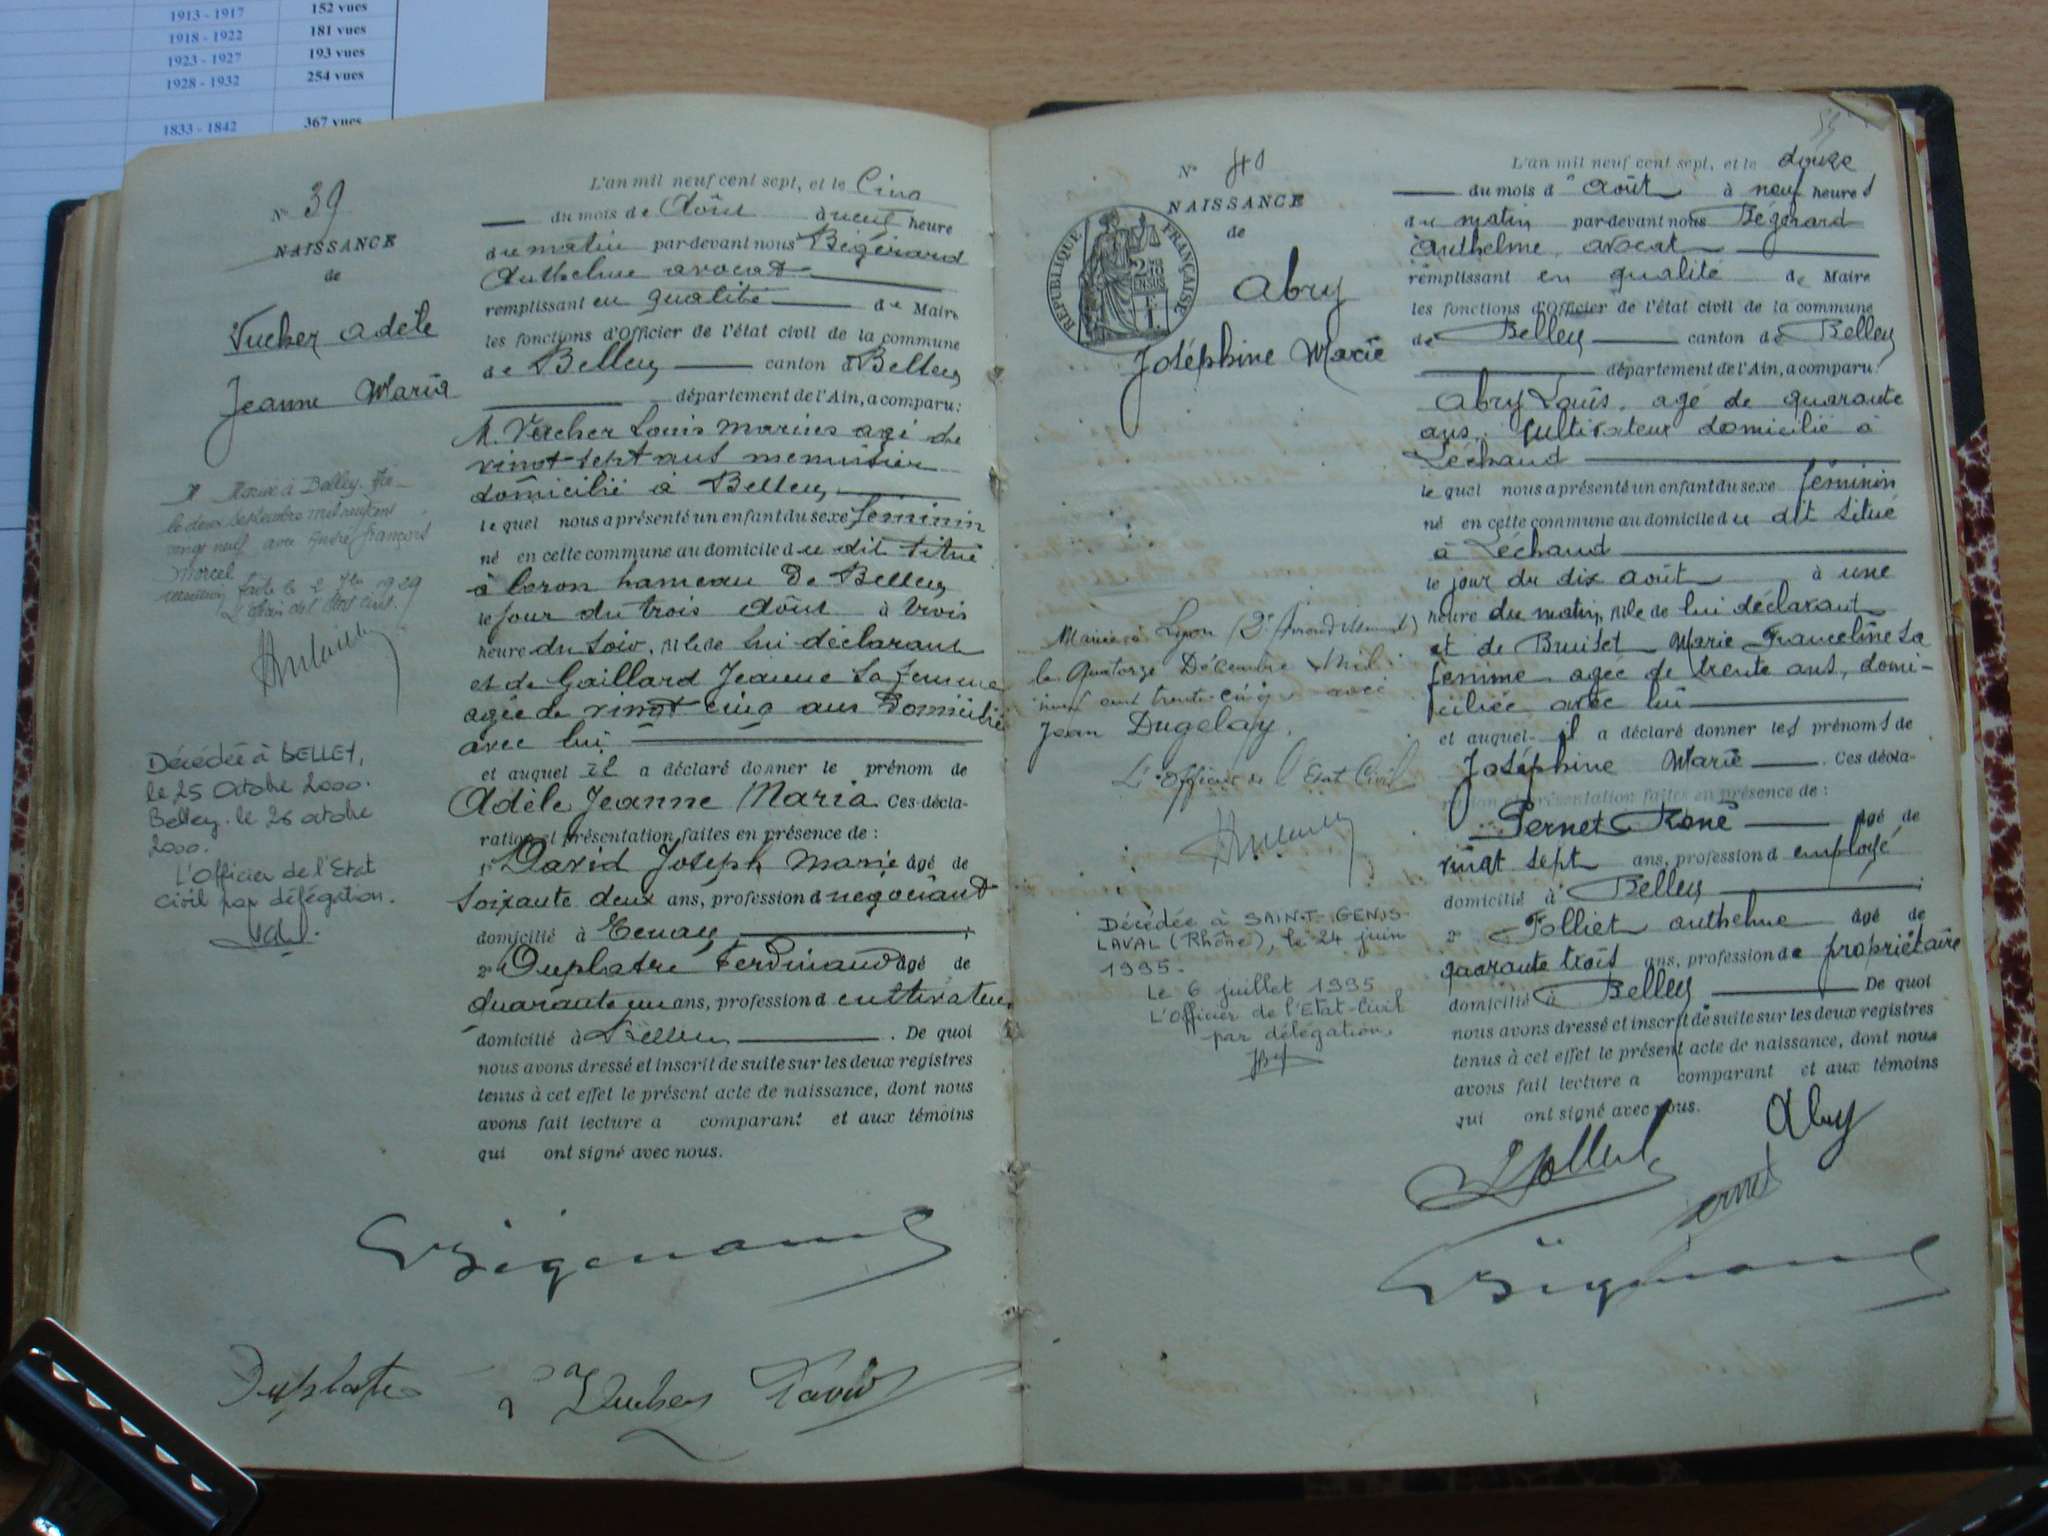 1913 - 1917 152 vues
1918 - 1922 181 vues
1923 - 1927 193 vues
1928 - 1932 254 vues
1833 - 1842 367 vues
N° 39
NAISSANCE
de
Vucher Adèle
Jeanne Maria
Marié à Belley
le deux Septembre mil neuf cent
vingt neuf avec André François
Morcel
faite le 2 7bre 1929
Décédée à BELLEY,
le 25 Octobre 2000.
Belley. le 26 octobre
2000.
L'Officier de l'Etat
civil par délégation.
L'an mil neuf cent sept, et le Cinq
du mois de Août à neuf heure
du matin par-devant nous Bégérard
Anthelme avocat
remplissant en qualité de Maire
les fonctions d'Officier de l'état civil de la commune
de Belley canton d Belley
département de l'Ain, a comparu:
M. Vucher Louis Marius agé de
vingt-sept ans menuisier
domicilié à Belley
le quel nous a présenté un enfant du sexe féminin
né en cette commune au domicile du dit situé
à Coron hameau de Belley
le jour du trois Août à trois
heure du soir, fille de lui déclarant
et de Gaillard Jeanne sa femme
agée de vingt cinq ans domicilié
avec lui
et auquel il a déclaré donner le prénom de
Adèle Jeanne Maria Ces décla-
ration et présentation faites en présence de :
1° David Joseph Marie âgé de
soixante deux ans, profession d négociant
domicilié à Tenay
2° Duplatre Ferdinand âgé de
quarante un ans, profession d cultivateur
domicilié à Belley . De quoi
nous avons dressé et inscrit de suite sur les deux registres
tenus à cet effet le présent acte de naissance, dont nous
avons fait lecture a comparant et aux témoins
qui ont signé avec nous.
Duplatre
Vucher David
N° 40
NAISSANCE
de
RÉPUBLIQUE FRANÇAISE
Abry
Joséphine Marie
Mariée à Lyon (2e Arrondissement)
le Quatorze Décembre Mil
neuf cent trente-cinq avec
Jean Dugelay.
L'Officier de l'Etat Civil
Décédée à SAINT-GENIS-
LAVAL (Rhône), le 24 juin
1995.
Le 6 juillet 1995
L'Officier de l'Etat-Civil
par délégation,
L'an mil neuf cent sept, et le douze
du mois d'août à neuf heures
du matin par-devant nous Bégérard
Anthelme, avocat
remplissant en qualité de Maire
les fonctions d'Officier de l'état civil de la commune
de Belley canton de Belley
département de l'Ain, a comparu:
Abry Louis, agé de quarante
ans, cultivateur domicilié à
Léchaud
le quel nous a présenté un enfant du sexe féminin
né en cette commune au domicile du dit situé
à Léchaud
le jour du dix août à une
heure du matin, fille de lui déclarant
et de Buitet Marie Franceline sa
femme agée de trente ans, domi-
ciliée avec lui
et auquel il a déclaré donner les prénoms de
Joséphine Marie . Ces décla-
ration et présentation faites en présence de :
Pernet René âgé de
vingt sept ans, profession d employé
domicilié à Belley
2° Folliet Anthelme âgé de
quarante trois ans, profession de propriétaire
domicilié à Belley De quoi
nous avons dressé et inscrit de suite sur les deux registres
tenus à cet effet le présent acte de naissance, dont nous
avons fait lecture a comparant et aux témoins
qui ont signé avec nous.
Abry
Folliet
Pernet